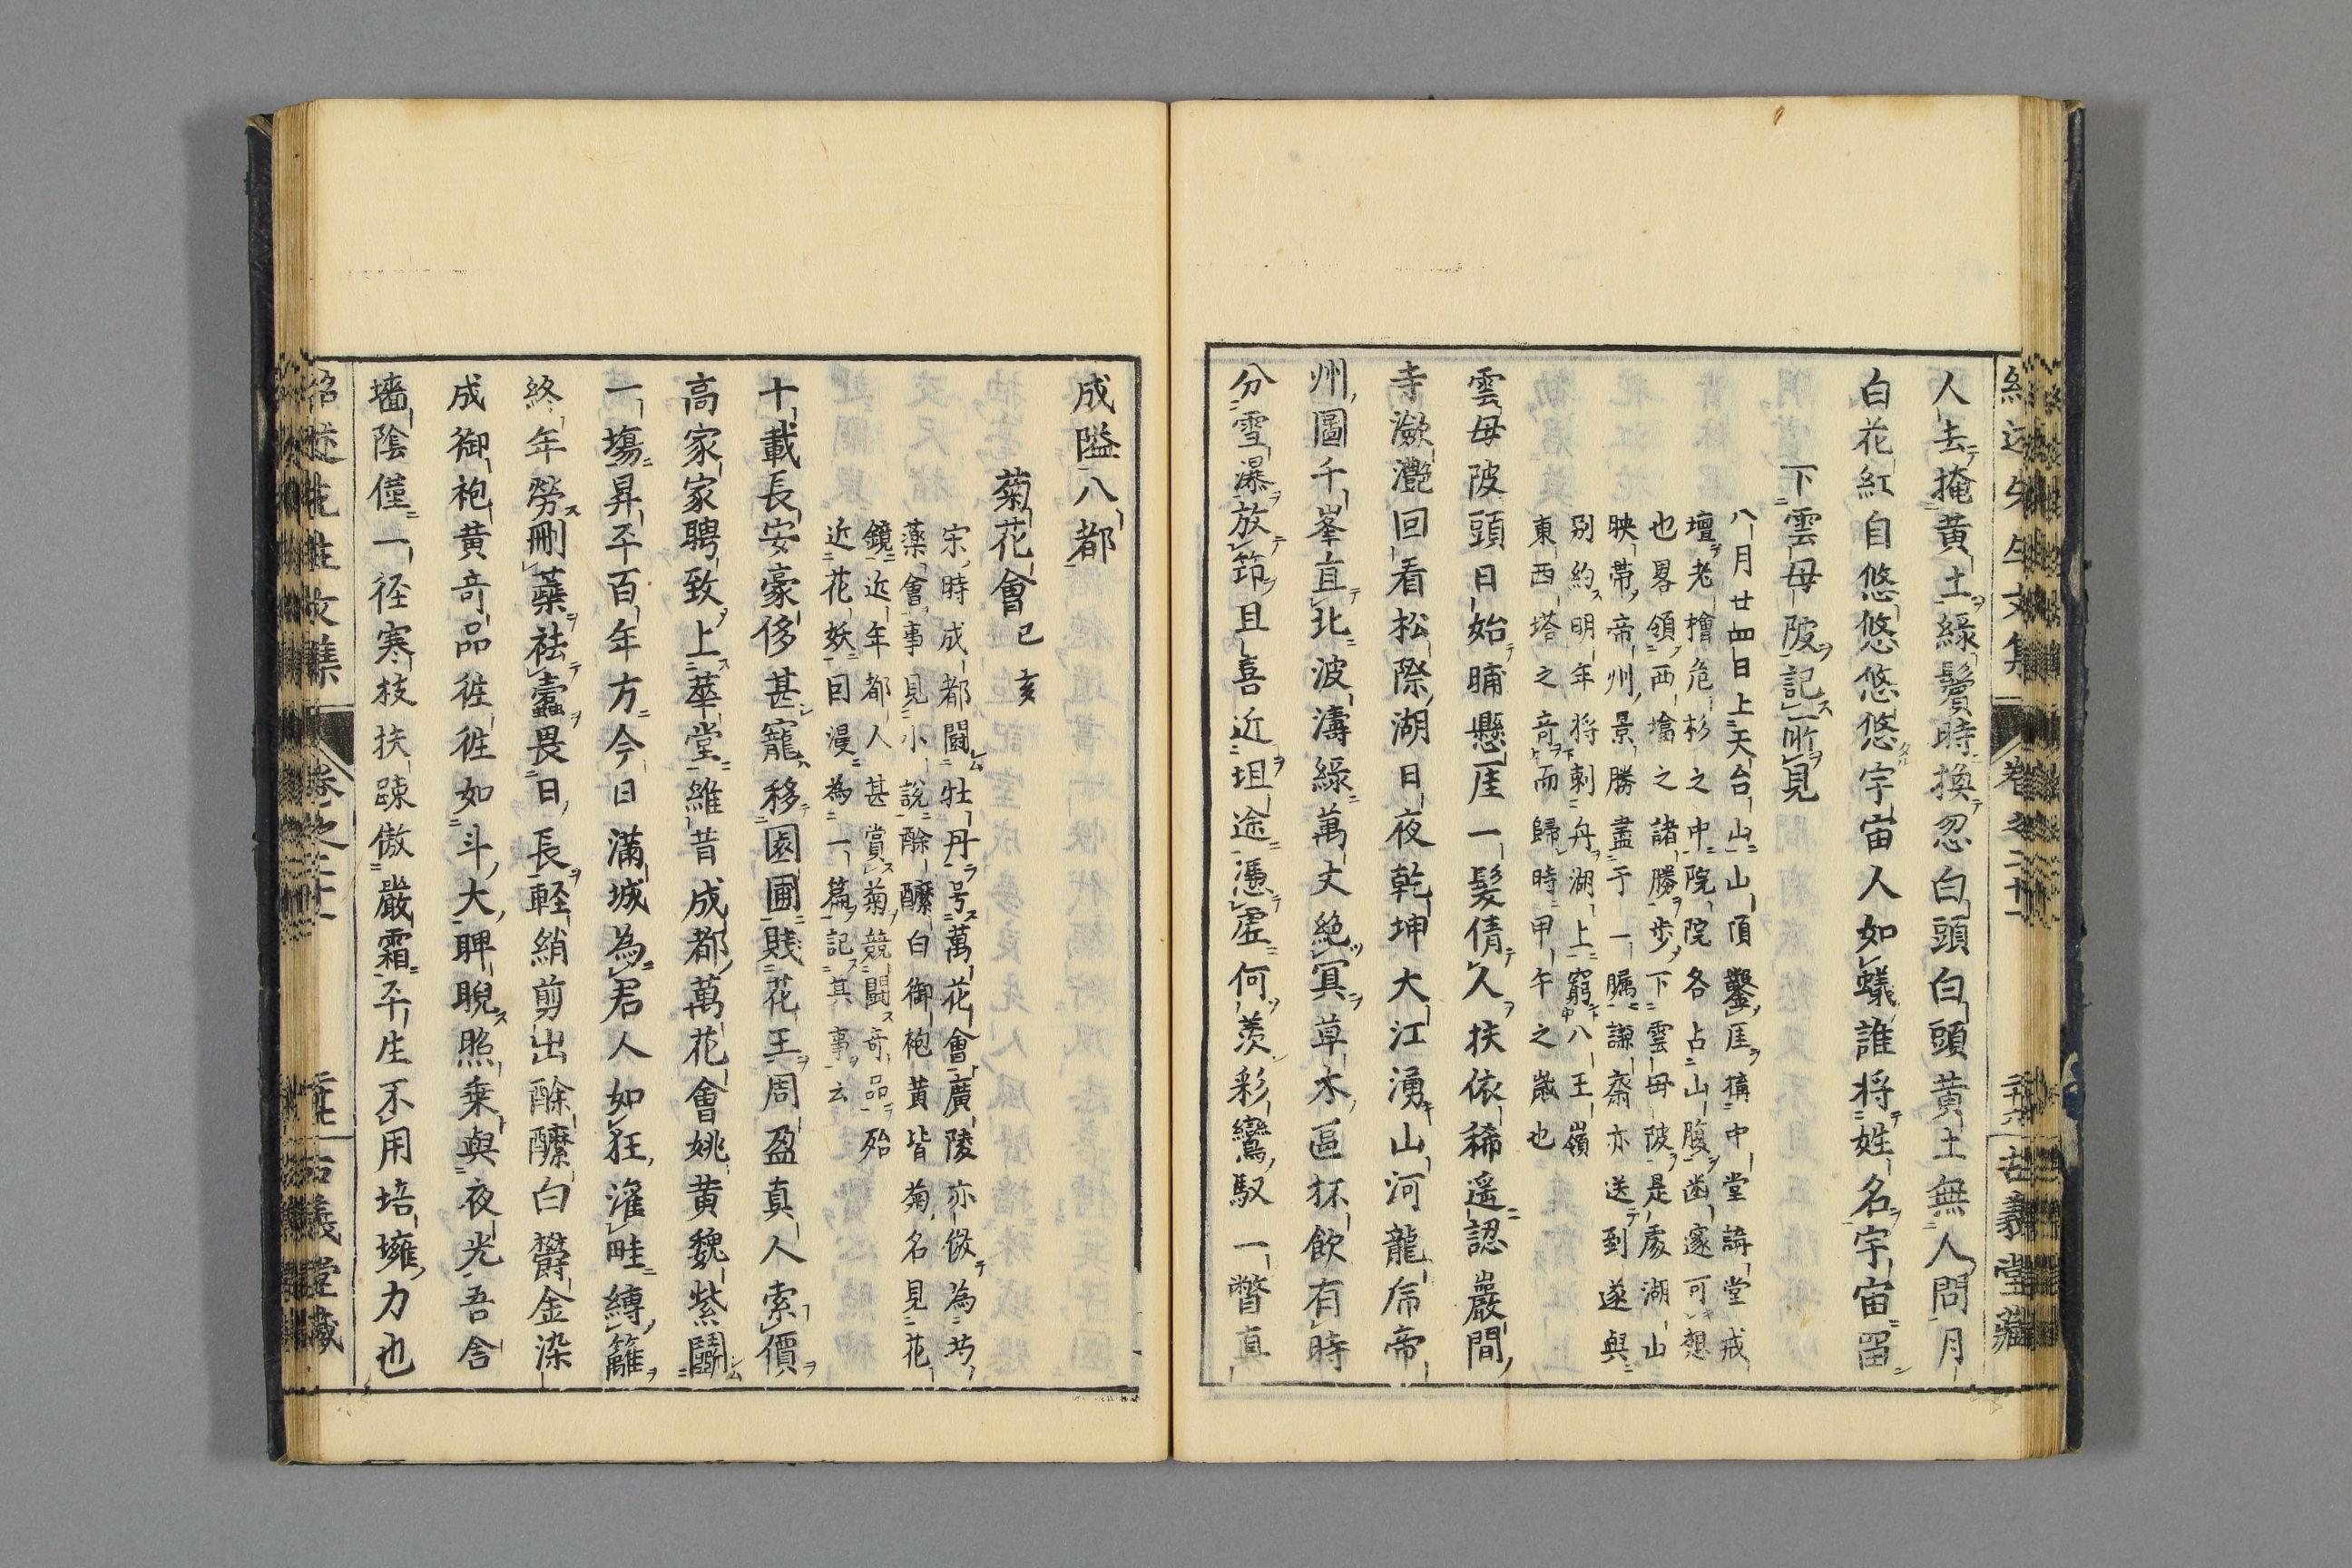 紹述先生文集
卷之二十
古義堂藏
人去掩黄土綠鬢時換忽白頭白頭黄土無人問月
白花紅自悠悠悠悠宇宙人如蟻誰将姓名宇宙留
下雲母陂記所見
八月廿四日上天台山山頂鑿厓構中堂講堂戒
壇老檜危杉之中院院各占山腹幽邃可想
也畧領西擔之諸勝步下雲母陂是處湖山
映帯帝州景勝盡于一矚謙齋亦送到遂與
別約明年将刺舟湖上窮八王嶺
東西塔之竒而歸時甲午之歲也
雲母陂頭日始晡懸厓一髪倩人扶依稀遥認巖間
寺瀲灔回看松際湖日夜乾坤大江湧山河龍虎帝
州圖千峯直北波濤綠萬丈絶冥草木區抔飲有時
分雪瀑放筇且喜近坦途憑虚何羡彩鸞馭一瞥真
成隘八都
菊花會己亥
宋時成都鬪牡丹号萬花會廣陵亦倣為芍
藥會事見小說酴醾白御袍黄皆菊名見花
鏡近年都人甚賞菊競鬪奇品殆
近花妖因漫為一篇記其事云
十載長安豪侈甚寵移園圃賤花王周盈真人索價
高家家聘致上華堂維昔成都萬花會姚黄魏紫鬪
一塲昇平百年方今日滿城為君人如狂濯畦縛籬
終年勞刪蘂祛蠹畏日長輕綃剪出酴醾白欝金染
成御袍黄竒品徃徃如斗大睥睨照乗與夜光吾舎
墻陰僅一径寒枝扶踈傲嚴霜平生不用培擁力也
紹述先生文集
卷之二十
古義堂藏